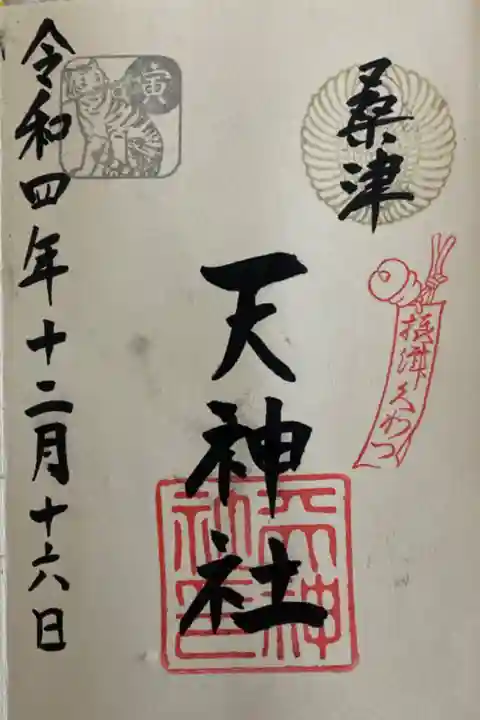 桑津
摂津くわつ
天神社
天神社印
寅
令和四年十二月十六日